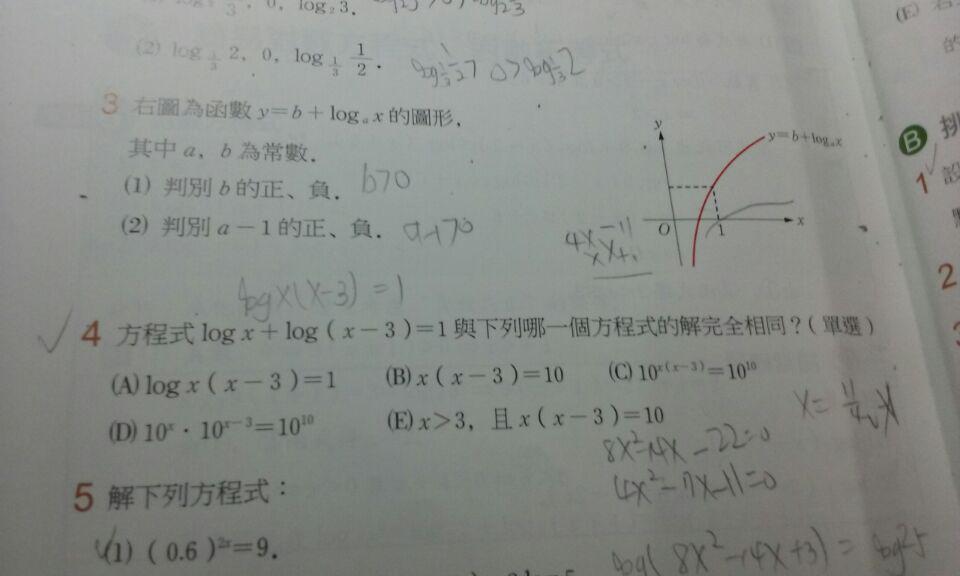 3, 0, log₂3.
(2) log_{1/3} 2, 0, log_{1/3} 1/2. log_{1/3} 1/2 > 0 > log_{1/3} 2
3 右圖為函數 y=b+logₐx 的圖形,
其中 a, b 為常數.
(1) 判別 b 的正、負. b>0
(2) 判別 a-1 的正、負. a-1>0
y
y=b+logₐx
O 1 x
4x -11
x
log x(x-3) = 1
4 方程式 log x+log(x-3)=1 與下列哪一個方程式的解完全相同?(單選)
(A) log x(x-3)=1 (B) x(x-3)=10 (C) 10^{x(x-3)}=10^{10}
(D) 10^x · 10^{x-3}=10^{10} (E) x>3, 且 x(x-3)=10
x= 11/4
8x²-14x-22=0
4x²-7x-11=0
5 解下列方程式:
(1) (0.6)^{2x}=9.
log(8x²-14x+3) = log25
(E)
的
B
1 設
2